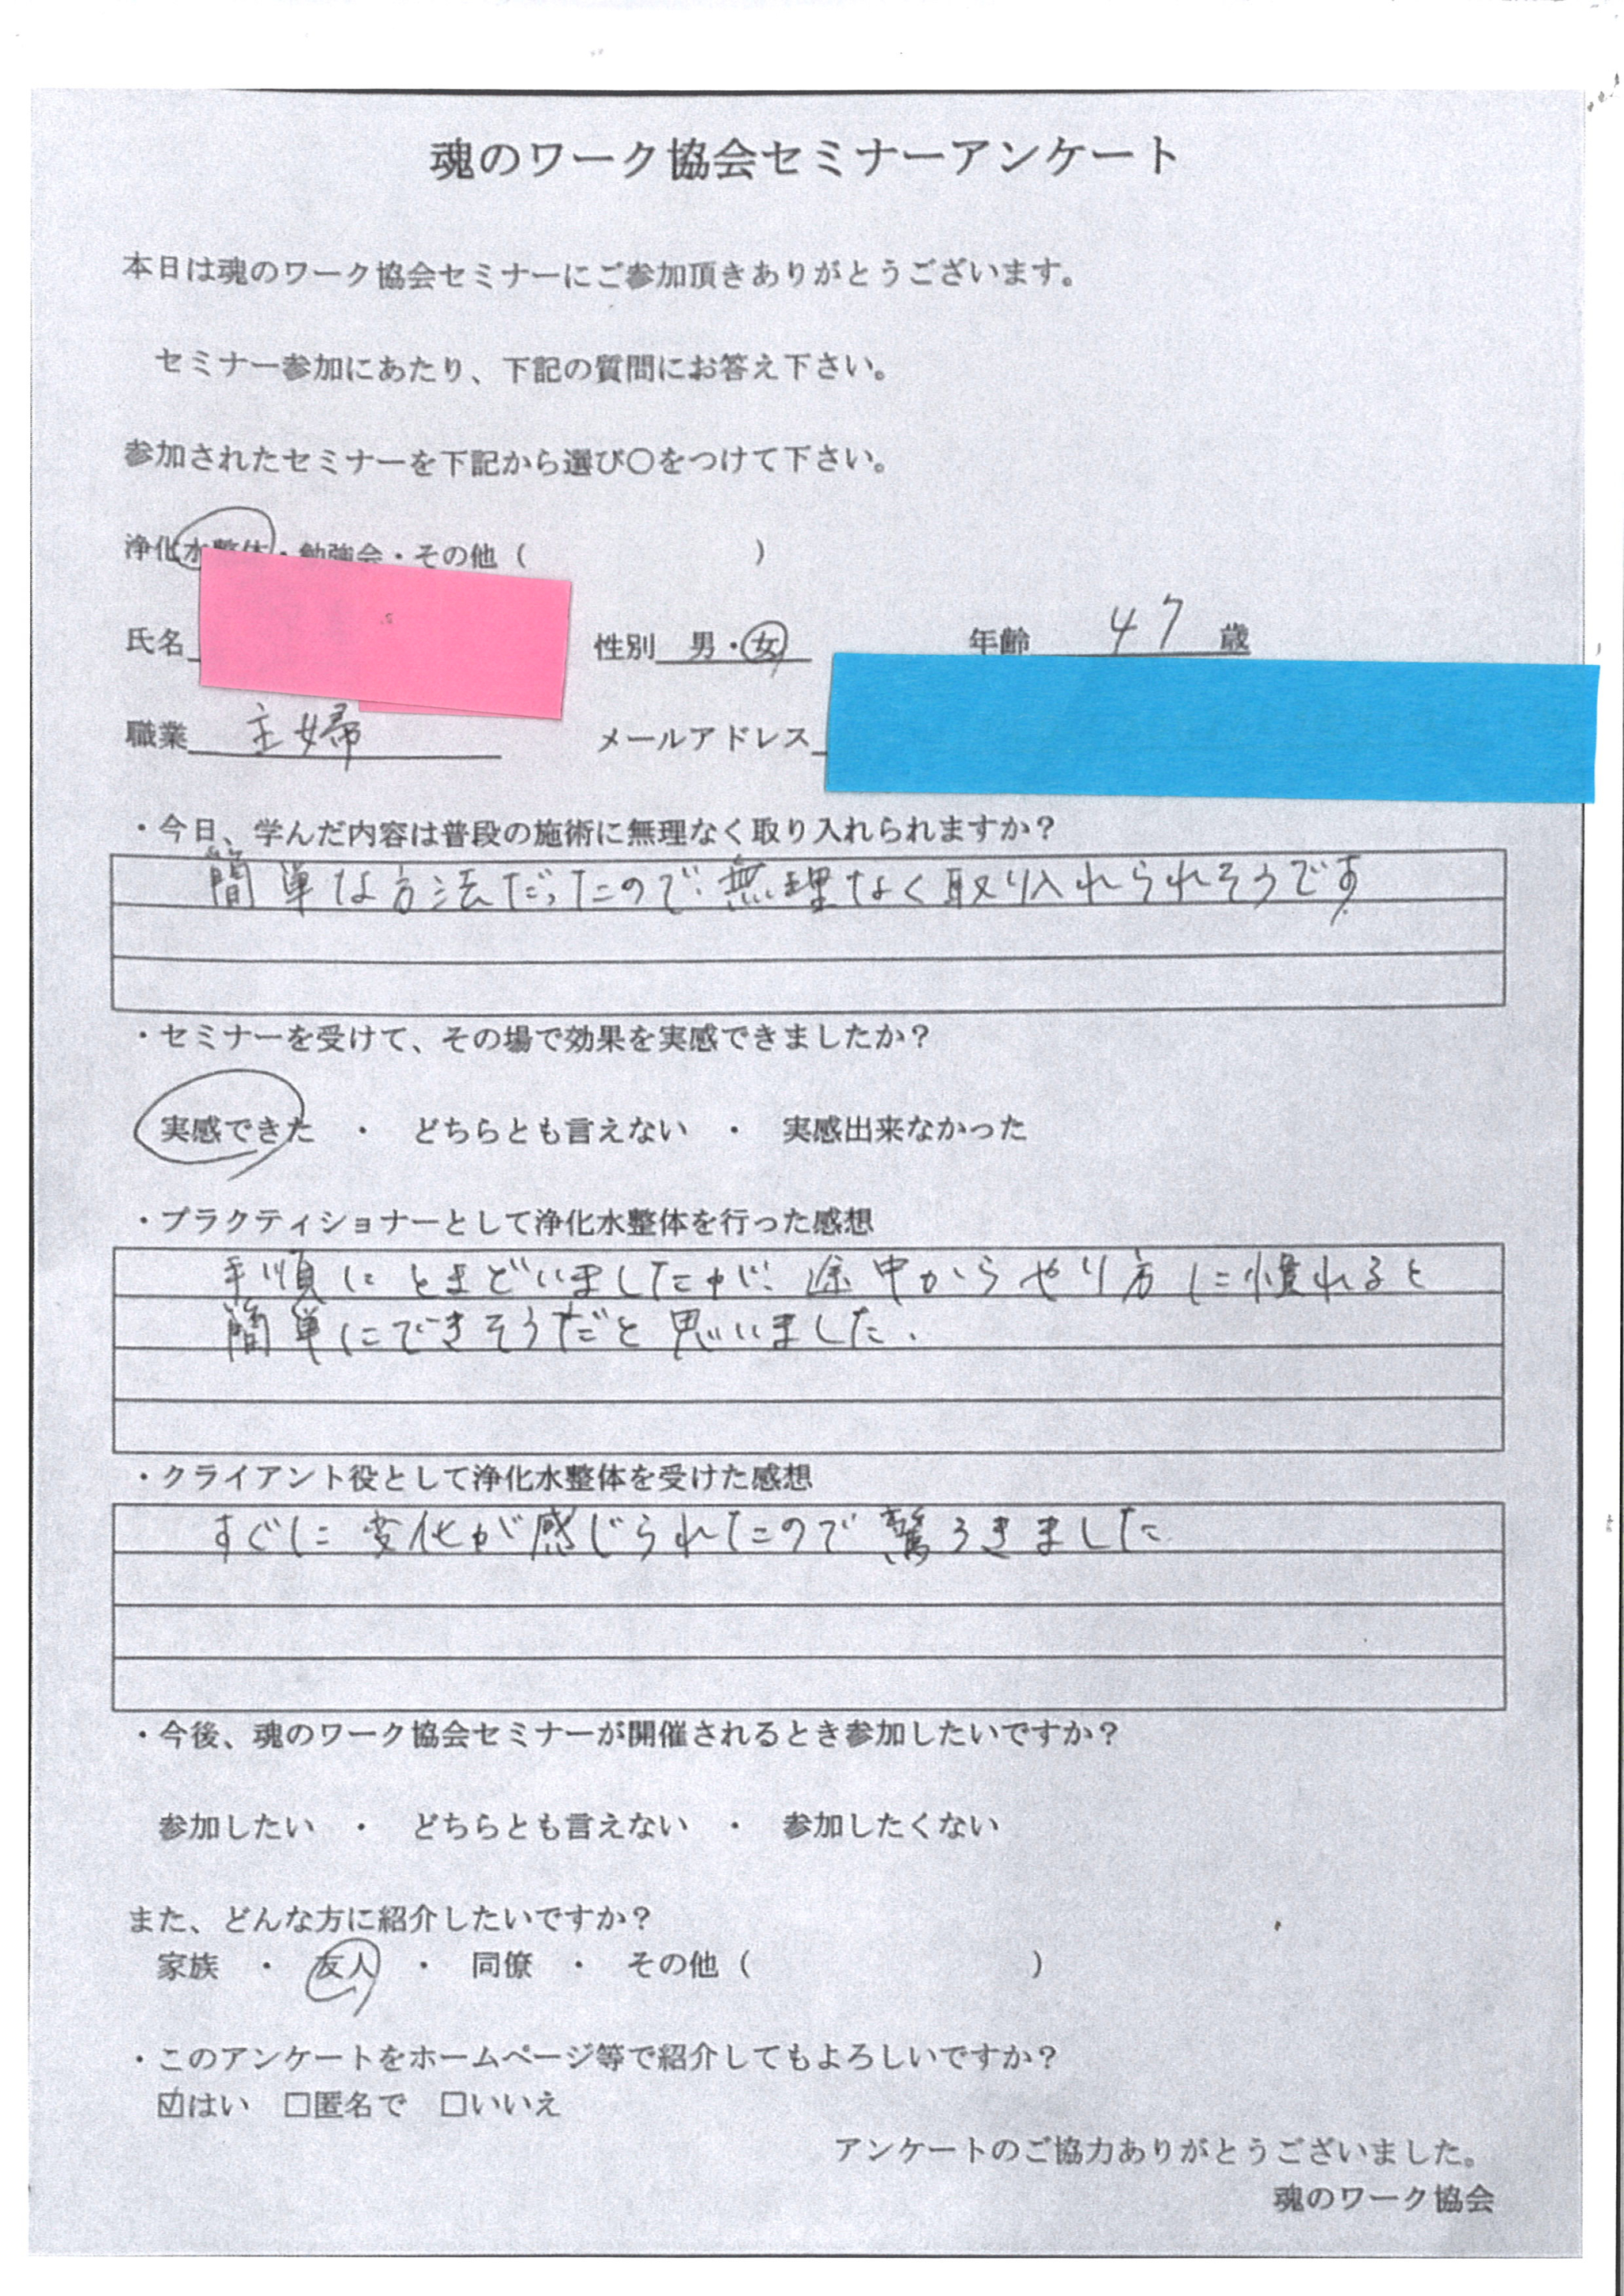 魂のワーク協会セミナーアンケート
本日は魂のワーク協会セミナーにご参加頂きありがとうございます。
セミナー参加にあたり、下記の質問にお答え下さい。
参加されたセミナーを下記から選び〇をつけて下さい。
浄化水整体・勉強会・その他（　　　　　　　）
氏名　性別　男・女　年齢　47　歳
職業　主婦　メールアドレス
・今日、学んだ内容は普段の施術に無理なく取り入れられますか？
簡単な方法だったので、無理なく取り入れられそうです
・セミナーを受けて、その場で効果を実感できましたか？
実感できた　・　どちらとも言えない　・　実感出来なかった
・プラクティショナーとして浄化水整体を行った感想
手順にとまどいましたが、途中からやり方に慣れると
簡単にできそうだと思いました.
・クライアント役として浄化水整体を受けた感想
すぐに変化が感じられたので驚ろきました
・今後、魂のワーク協会セミナーが開催されるとき参加したいですか？
参加したい　・　どちらとも言えない　・　参加したくない
また、どんな方に紹介したいですか？
家族　・　友人　・　同僚　・　その他（　　　　　　　　　）
・このアンケートをホームページ等で紹介してもよろしいですか？
☑はい　□匿名で　□いいえ
アンケートのご協力ありがとうございました。
魂のワーク協会